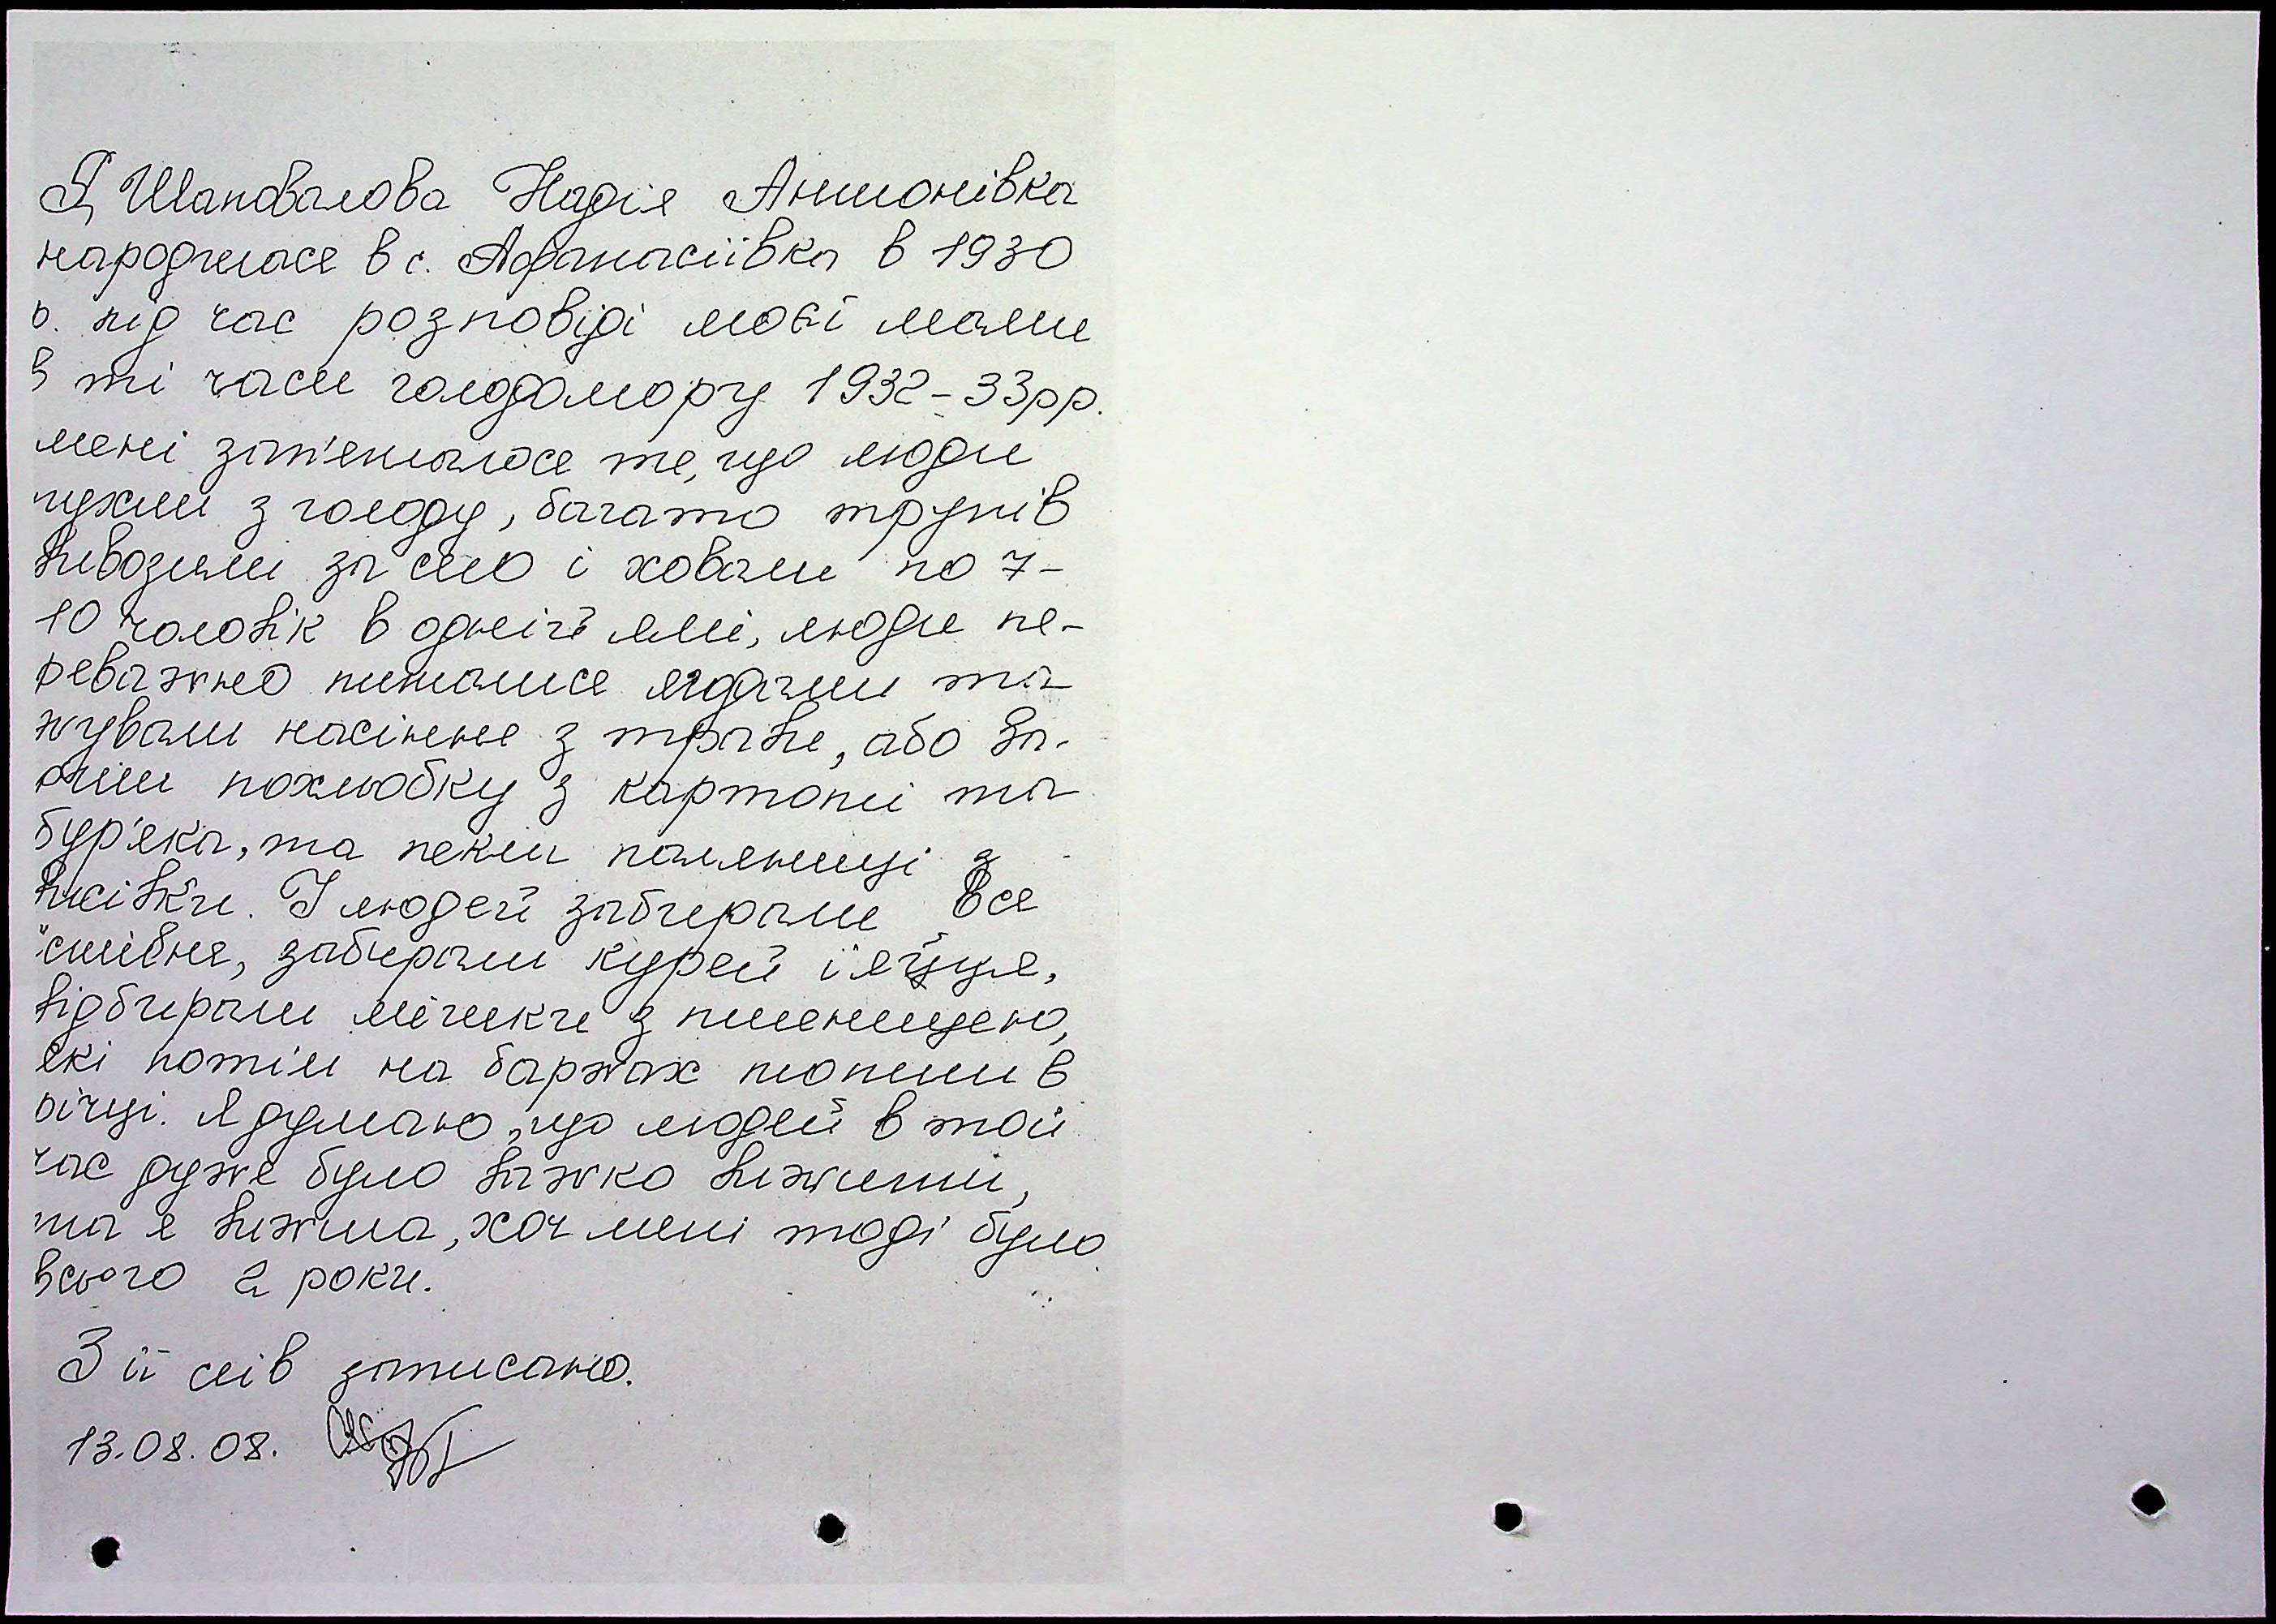 Я, Шаповалова Надія Антонівка
народилася в с. Афанасіївка в 1930
р. під час розповіді моєї мами
в ті часи голодомору 1932-33рр.
мені зап'яталося те, що люди
пухли з голоду, багато трупів
вивозили за село і ховали по 7-
10 чоловік в одній ямі, люди пе-
реважно питалися ягодами та
жували насіння з трави, або ва-
рили похльобку з картоплі та
бур'яка, та пекли паляниці з
висівки. У людей забирали все
їстівня, забирали курей і яйця,
відбирали мішки з пшеницею,
які потім на баржах топили в
річці. Я думаю, що людей в той
час дуже було важко вижити,
та я вижила, хоч мені тоді було
всього 2 роки.
З її слів записано.
13.08.08.